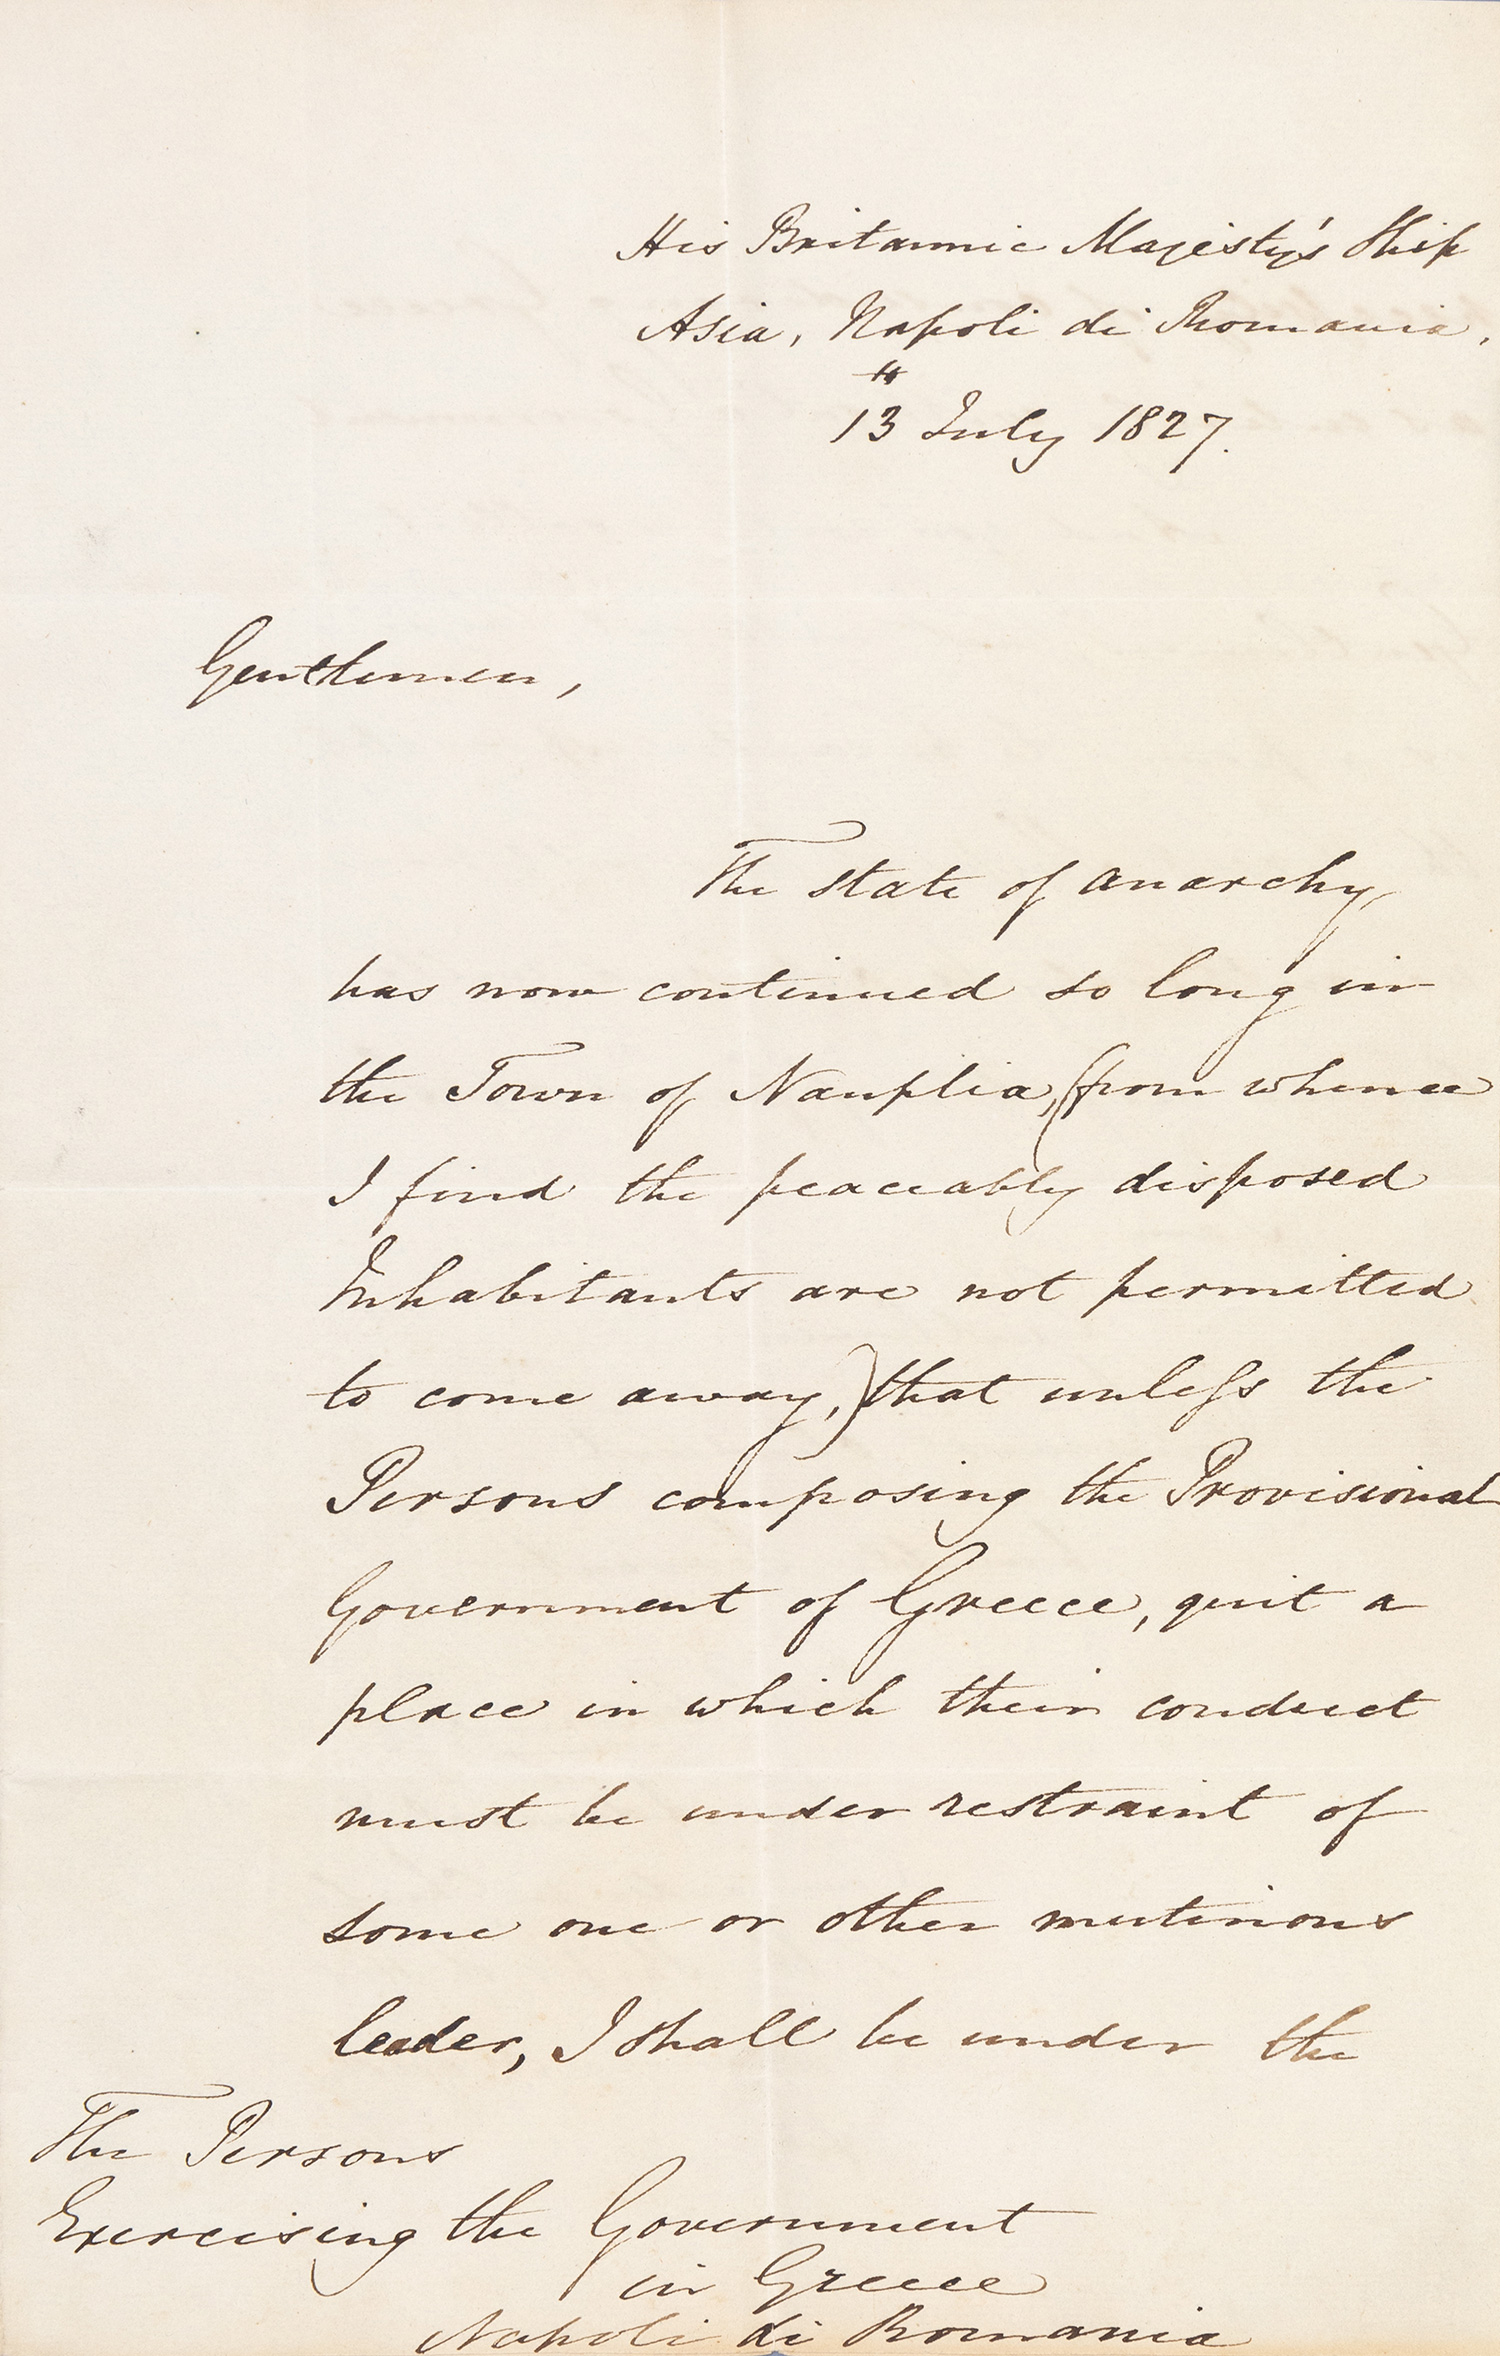 His Britannic Majesty's Ship
Asia, Napoli di Romania,
13th July 1827.
Gentlemen,
The state of anarchy,
has now continued so long in
the Town of Nauplia, (from whence
I find the peaceably disposed
Inhabitants are not permitted
to come away,) that unless the
Persons composing the Provisional
Government of Greece, quit a
place in which their conduct
must be under restraint of
some one or other mutinous
leader, I shall be under the
The Persons
Exercising the Government
in Greece
Napoli di Romania